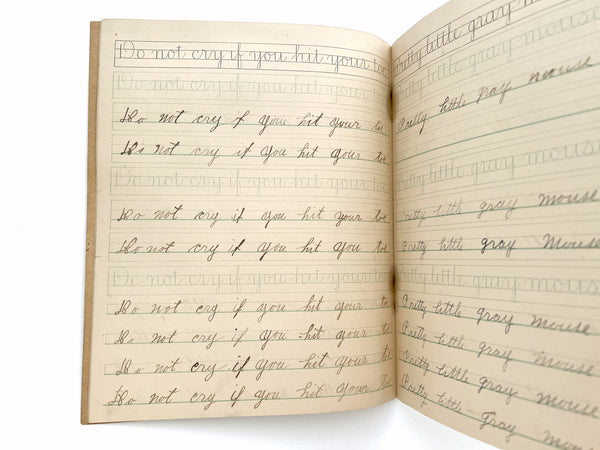 Do not cry if you hit your toe
Do not cry if you hit your toe
Do not cry if you hit your to
Do not cry if you hit your toe
Do not cry if you hit your toe
Do not cry if you hit your toe
Do not cry if you hit your toe
Do not cry if you hit your toe
Do not cry if you hit your toe
Do not cry if you hit your to
Do not cry if you hit your to
Do not cry if you hit your to
Pretty little gray mouse
Pretty little gray mouse
Pretty little gray mouse
Pretty little gray mouse
Pretty little gray mouse
Pretty little gray Mouse
Pretty little gray mouse
Pretty little gray mouse
Pretty little gray mouse
Pretty little gray mouse
Pretty little Gray mouse